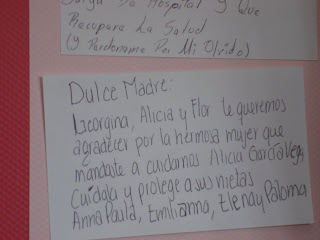 Salga De Hospital Y Que
Recupere La Salud
(Y Perdoname Por Mi Olvido)
Dulce Madre:
Georgina, Alicia y Flor le queremos
agradecer por la hermosa mujer que
mandaste a cuidarnos Alicia García Vega,
Cuidala y protege a sus nietas
Anna Paula, Emilianna, Elena y Paloma